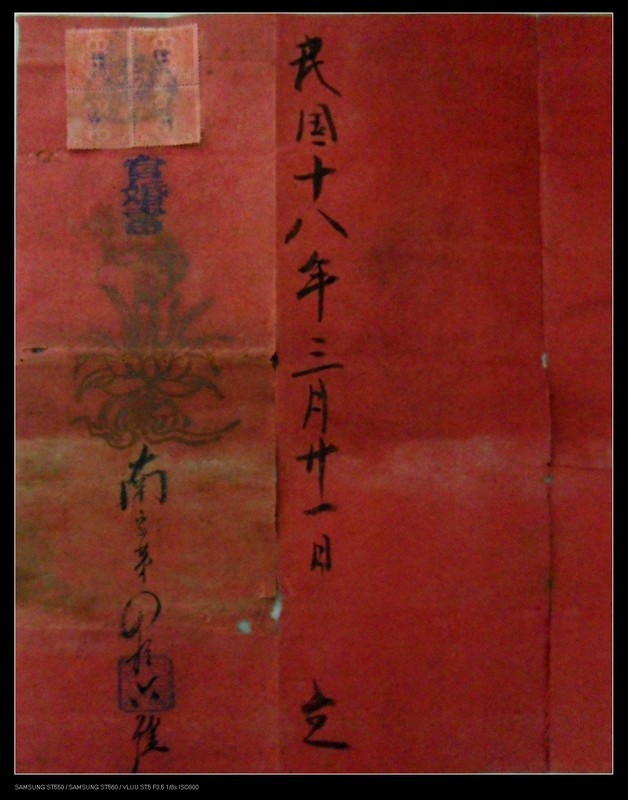 民国十八年三月廿一日 立
官婚書
南字第四拾六號
SAMSUNG ST550 / SAMSUNG ST560 / VLUU ST5 F3.5 1/8s ISO800